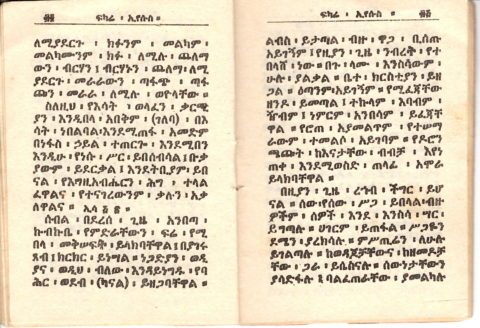 ፵፬ ፍካሬ ፡ ኢየሱስ ።
ለሚያደርጉ ፡ ክፋንም ፡ መልካም ፡
መልካሙንም ፡ ክፉ ፡ ለሚሉ ፡ ጨለማ
ውን ፡ ብርሃን ፤ ብርሃኑን ፡ ጨለማ፡ ለሚ
ያደርጉ ፡ መራራውን ፡ ጣፋጭ ፡ ጣፋ
ጩን ፡ መራራ ፡ ለሚሉ ፡ ወዮላቸው ።
ስለዚህ ፡ የእሳት ፡ ወላፈን ፡ ቃርሚ
ያን ፡ እንዲበላ ፡ እበቅም ፡ (ገለባ) ፡ በእ
ሳት ፡ ነበልባል፡ እንደሚጠፋ ፡ አመድም
በነፋስ ፡ ኃይል ፡ ተጠርጐ ፡ እንደሚበን
እንዲሁ ፡ የነሱ ፡ ሥር ፡ ይበሰብሳል ፤ ቡቃ
ያውም ፡ ይደርቃል ፤ እንደትቢያም፡ ይበ
ናል ፡ የእግዚአብሔርን ፡ ሕግ ፡ ተላል
ፈዋልና ፡ የተናገረውንም ፡ ቃሉን ፡ አቃ
ለዋልና ።
ሰብል ፡ በደረሰ ፡ ጊዜ ፡ አንበጣ ፡
ኩብኩቤ ፡ የምድራቸውን ፡ ፍሬ ፡ የሚ
በላ ፡ መቅሠፍት ፡ ይላክባቸዋል ፤ በያገሩ
ጾብ ፤ ክርክር ፡ ይነግሣል ፡ ነጋድያን ፡ ወዲ
ያና ፡ ወዲህ ፡ ብለው ፡ እንዳይነግዱ ፡ የባ
ሕር ፡ ወደብ ፡ (ካናል) ፡ ይዘጋባቸዋል ።
ፍካሬ ፡ ኢየሱስ ። ፵፭
ልብስ ፡ ይታጣል ፡ ብዙ ፡ ዋጋ ፡ ቢሰጡ
አይገኝም ፤ የዚያን ፡ ጊዜ ፡ ንብረቅ ፡ የተ
በላሸ ፡ ነው ። በጐ ፡ ላሙ ፡ እንስሳውም ፡
ሁሉ ፡ ያልቃል ። ቤተ ፡ ክርስቲያን ፡ ይዘ
ጋል ። ዕጣንም፡ አይገኝም ። የሚፈጃቸው
ዘንዶ ፡ ይመጣል ፤ ተኩላም ፡ እባብም ፡
ዥብም ፤ ነምርም ፡ አንበሳም ፡ ይፈጃቸ
ዋል ። የሮጠ ፡ አያመልጥም ፡ የተሠማ
ራውም ፡ ተመልሶ ፡ አይገባም ። የዶሮን
ጫጩት ፡ ከእናታቸው ፡ ብብቻ ፡ እየነ
ጠቀ ፡ እንደሚወስድ ፡ ጠላፊ ፡ አሞራ
ይላክባቸዋል ።
በዚያን ፡ ጊዜ ፡ ረኀብ ፡ ችግር ፡ ይሆ
ናል ። ሰው፡ የሰው ፡ ሥጋ ፡ ይበላል፡ ብዙ
ዎችም ፡ ሰዎች ፡ እንደ ፡ እንስሳ ፡ ሣር ፡
ይግጣሉ ። ሀገርም ፡ ይጠፋል ። ሥጋዬን
ደሜን ፡ ያረክሳሉ ። ምሥጢሬን ፡ ለሁሉ
ይገልጣሉ ። ከወዳጆቻቸውና ፡ ከዘመዶቻ
ቸው ፡ ጋራ ፡ ይሴስናሉ ። ሰውነታቸውን
ያሳድፋሉ ፤ ባልፈጠራቸው ፡ ያመልካሉ